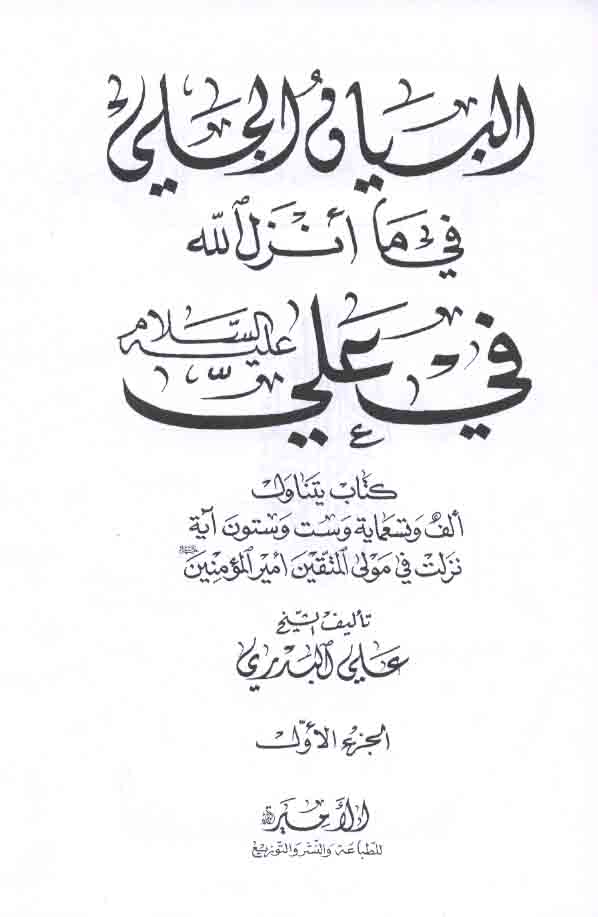 البيان الجلي
في ما أنزل الله
في علي عليه السلام
كتاب يتناول
ألف وتسعماية وست وستون آية
نزلت في مولى المتقين أمير المؤمنين
تأليف الشيخ
علي البدري
الجزء الأول
الأمير
للطباعة والنشر والتوزيع